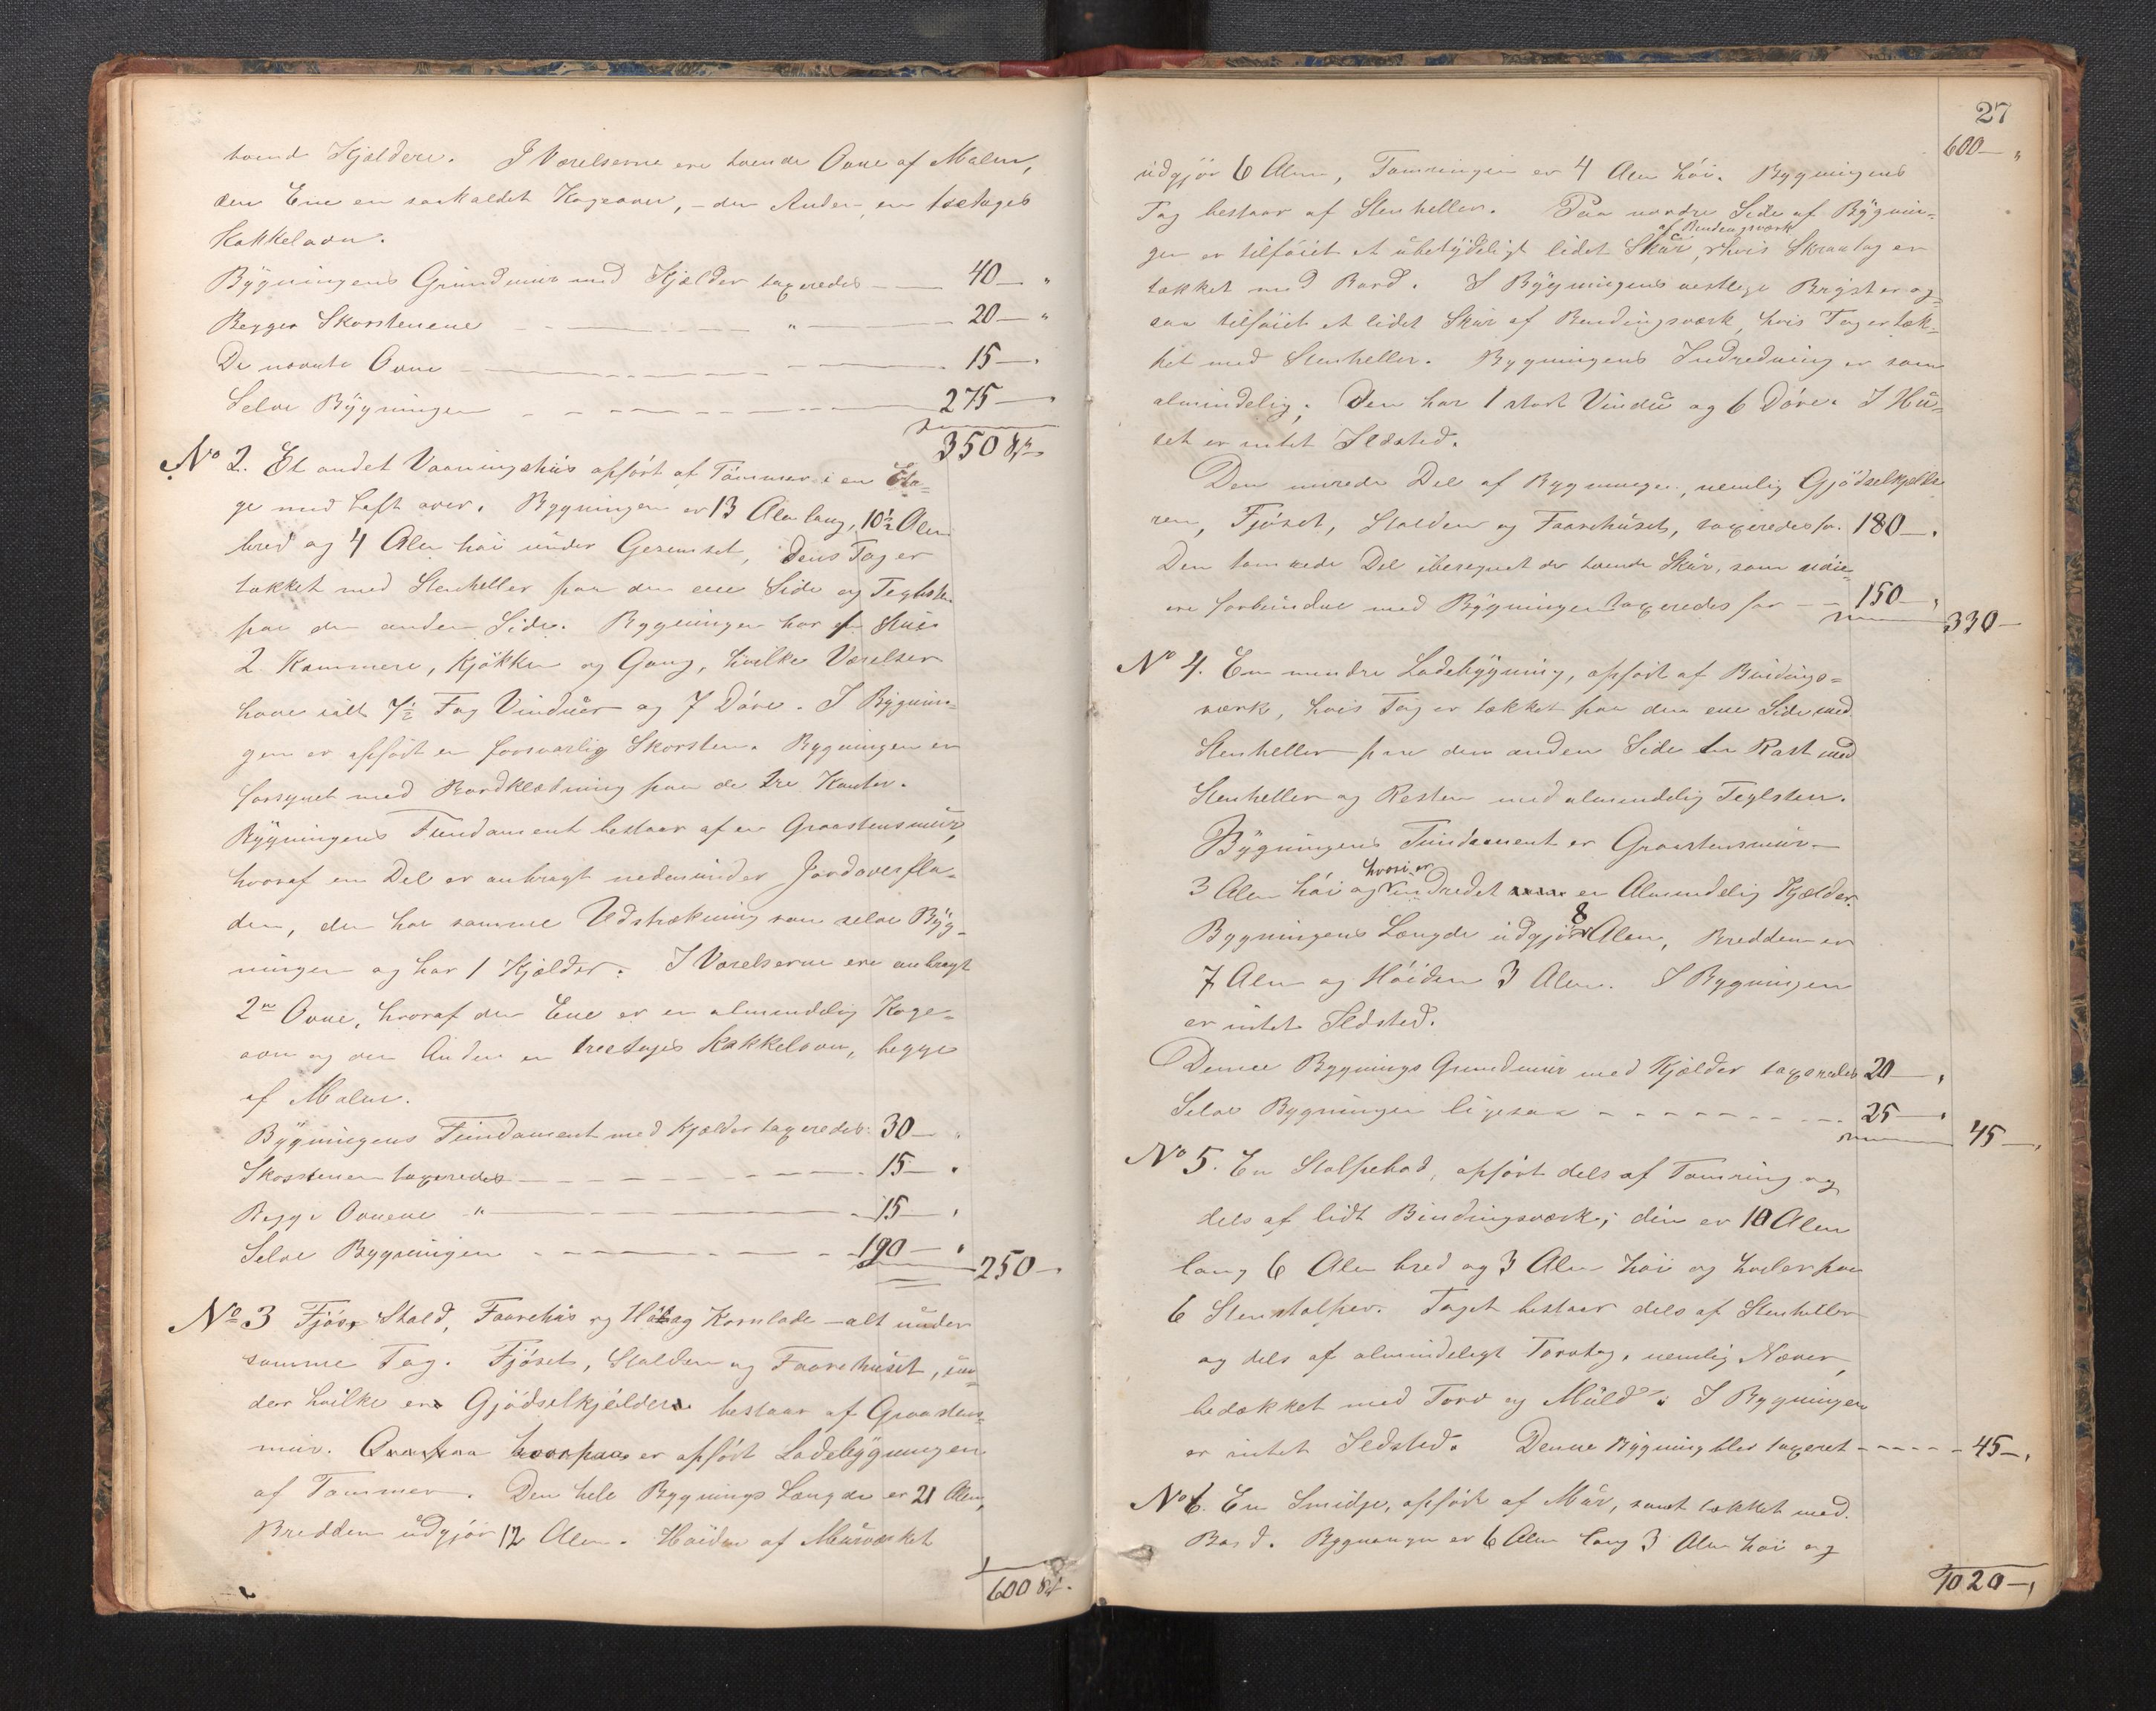 tvende Kjældere. I Værelserne ere tvende Ovne af Malm,
den Ene en saakaldet Kogeovn, - den Anden en toetages
Kakkelovn.
Bygningens Grundmur med Kjælder taxeredes — 40 — "
Begge Skorstenene — " — 20 — "
De nævnte Ovne — 15 — "
Selve Bygningen — 275 —
350 Spd
No 2. Et andet Vaaningshus opført af Tømmer i en Eta-
ge med Loft over. Bygningen er 13 Alen lang, 10½ Alen
bred og 4 Alen høi under Gesemset, dens Tag er
tækket med Stenheller paa den ene Side og Teglsten
paa den anden Side. Bygningen har 1 Stue
2 Kammere, Kjøkken og Gang, hvilke Værelser
have ialt 7½ Fag Vinduer og 7 Døre. I Bygnin-
gen er opført en forsvarlig Skorsten. Bygningen er
forsynet med Bordklædning paa de tre Kanter.
Bygningens Fundament bestaar af en Graastensmur,
hvoraf en Del er anbragt nedenunder Jordoverfla-
den, den har samme Udstrækning som selve Byg-
ningen og har 1 Kjælder. I Værelserne ere anbragt
2de Ovne, hvoraf den Ene er en almindelig Koge-
ovn og den Anden en treetages Kakkelovn, begge
af Malm.
Bygningens Fundament med Kjælder taxeredes 30 — "
Skorstenen taxeredes — 15 — "
Begge Ovnene " — 15 — "
Selve Bygningen — 190 — "
250 —
No 3 Fjøs, Stald, Faarehus og Hø og Kornlade - alt under
samme Tag. Fjøset, Stalden og Faarehuset, un-
der hvilke er Gjødselkjælder bestaar af Graastens-
mur. Ovenpaa hvorpaa er opført Ladebygningen
af Tømmer. Den hele Bygnings Længde er 21 Alen,
Bredden udgjør 12 Alen. Høiden af Murværket
600 Spd.
27
600 — "
udgjør 6 Alen, Tømringen er 4 Alen høi. Bygningens
Tag bestaar af Stenheller. Paa nordre Side af Bygnin-
af Bindingsværk
gen er tilføiet et ubetydeligt lidet Skur, hvis Skraatag er
tækket med Bord. I Bygningens vestlige Bryst er og-
saa tilføiet et lidet Skur af Bindingsværk, hvis Tag er tæk-
ket med Stenheller. Bygningens Indredning er som
almindelig; Den har 1 stort Vindu og 6 Døre. I Hu-
set er intet Ildsted.
Den murede Del af Bygningen, nemlig Gjødselkjelle-
ren, Fjøset, Stalden og Faarehuset, taxeredes for 180 — "
Den tømrede Del iberegnet de tvende Skur, som
ere forbundne med Bygningen taxeredes for — 150 — "
330 —
No 4. En mindre Ladebygning, opført af Bindings-
værk, hvis Tag er tækket paa den ene Side med
Stenheller paa den anden Side en Rast med
Stenheller og Resten med almindelig Teglsten.
Bygningens Fundament er Graastensmur
hvori er
3 Alen høi og indredet en Almindelig Kjælder.
Bygningens Længde udgjør 8 Alen, Bredden er
7 Alen og Høiden 3 Alen. I Bygningen
er intet Ildsted.
Denne Bygnings Grundmur med Kjælder taxeredes 20 — "
Selve Bygningen ligesaa — 25 — "
45 — "
No 5. En Stolpebod, opført dels af Tømring og
dels af lidt Bindingsværk; den er 10 Alen
lang 6 Alen bred og 3 Alen høi og hviler paa
6 Stenstolper. Taget bestaar dels af Stenheller
og dels af almindeligt Torvtag, nemlig Næver,
bedækket med Torv og Muld. I Bygningen
er intet Ildsted. Denne Bygning blev taxeret — 45 — "
No 6. En Smidje, opført af Mur, samt tækket med
Bord. Bygningen er 6 Alen lang 3 Alen høi og
1020 — "